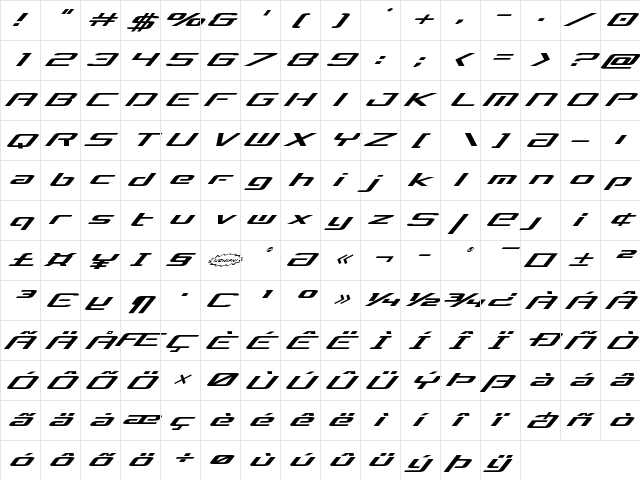 ! " # $ % G ' ( ) * + , - . / 0
1 2 3 4 5 6 7 8 9 : ; < = > ? @
A B C D E F G H I J K L M N O P
Q R S T U V W X Y Z [ \ ] a _ '
a b c d e f g h i j k l m n o p
q r s t u v w x y z S | e J i ¢
£ ¤ ¥ I § a « ¬ - ® ¯ O ± ²
³ E µ ¶ · C ¹ º » ¼ ½ ¾ ¿ À Á Â
Ã Ä Å Æ Ç È É Ê Ë Ì Í Î Ï Ð Ñ Ò
Ó Ô Õ Ö × Ø Ù Ú Û Ü Ý Þ ß à á â
ã ä å æ ç è é ê ë ì í î ï ð ñ ò
ó ô õ ö ÷ ø ù ú û ü ý þ ÿ